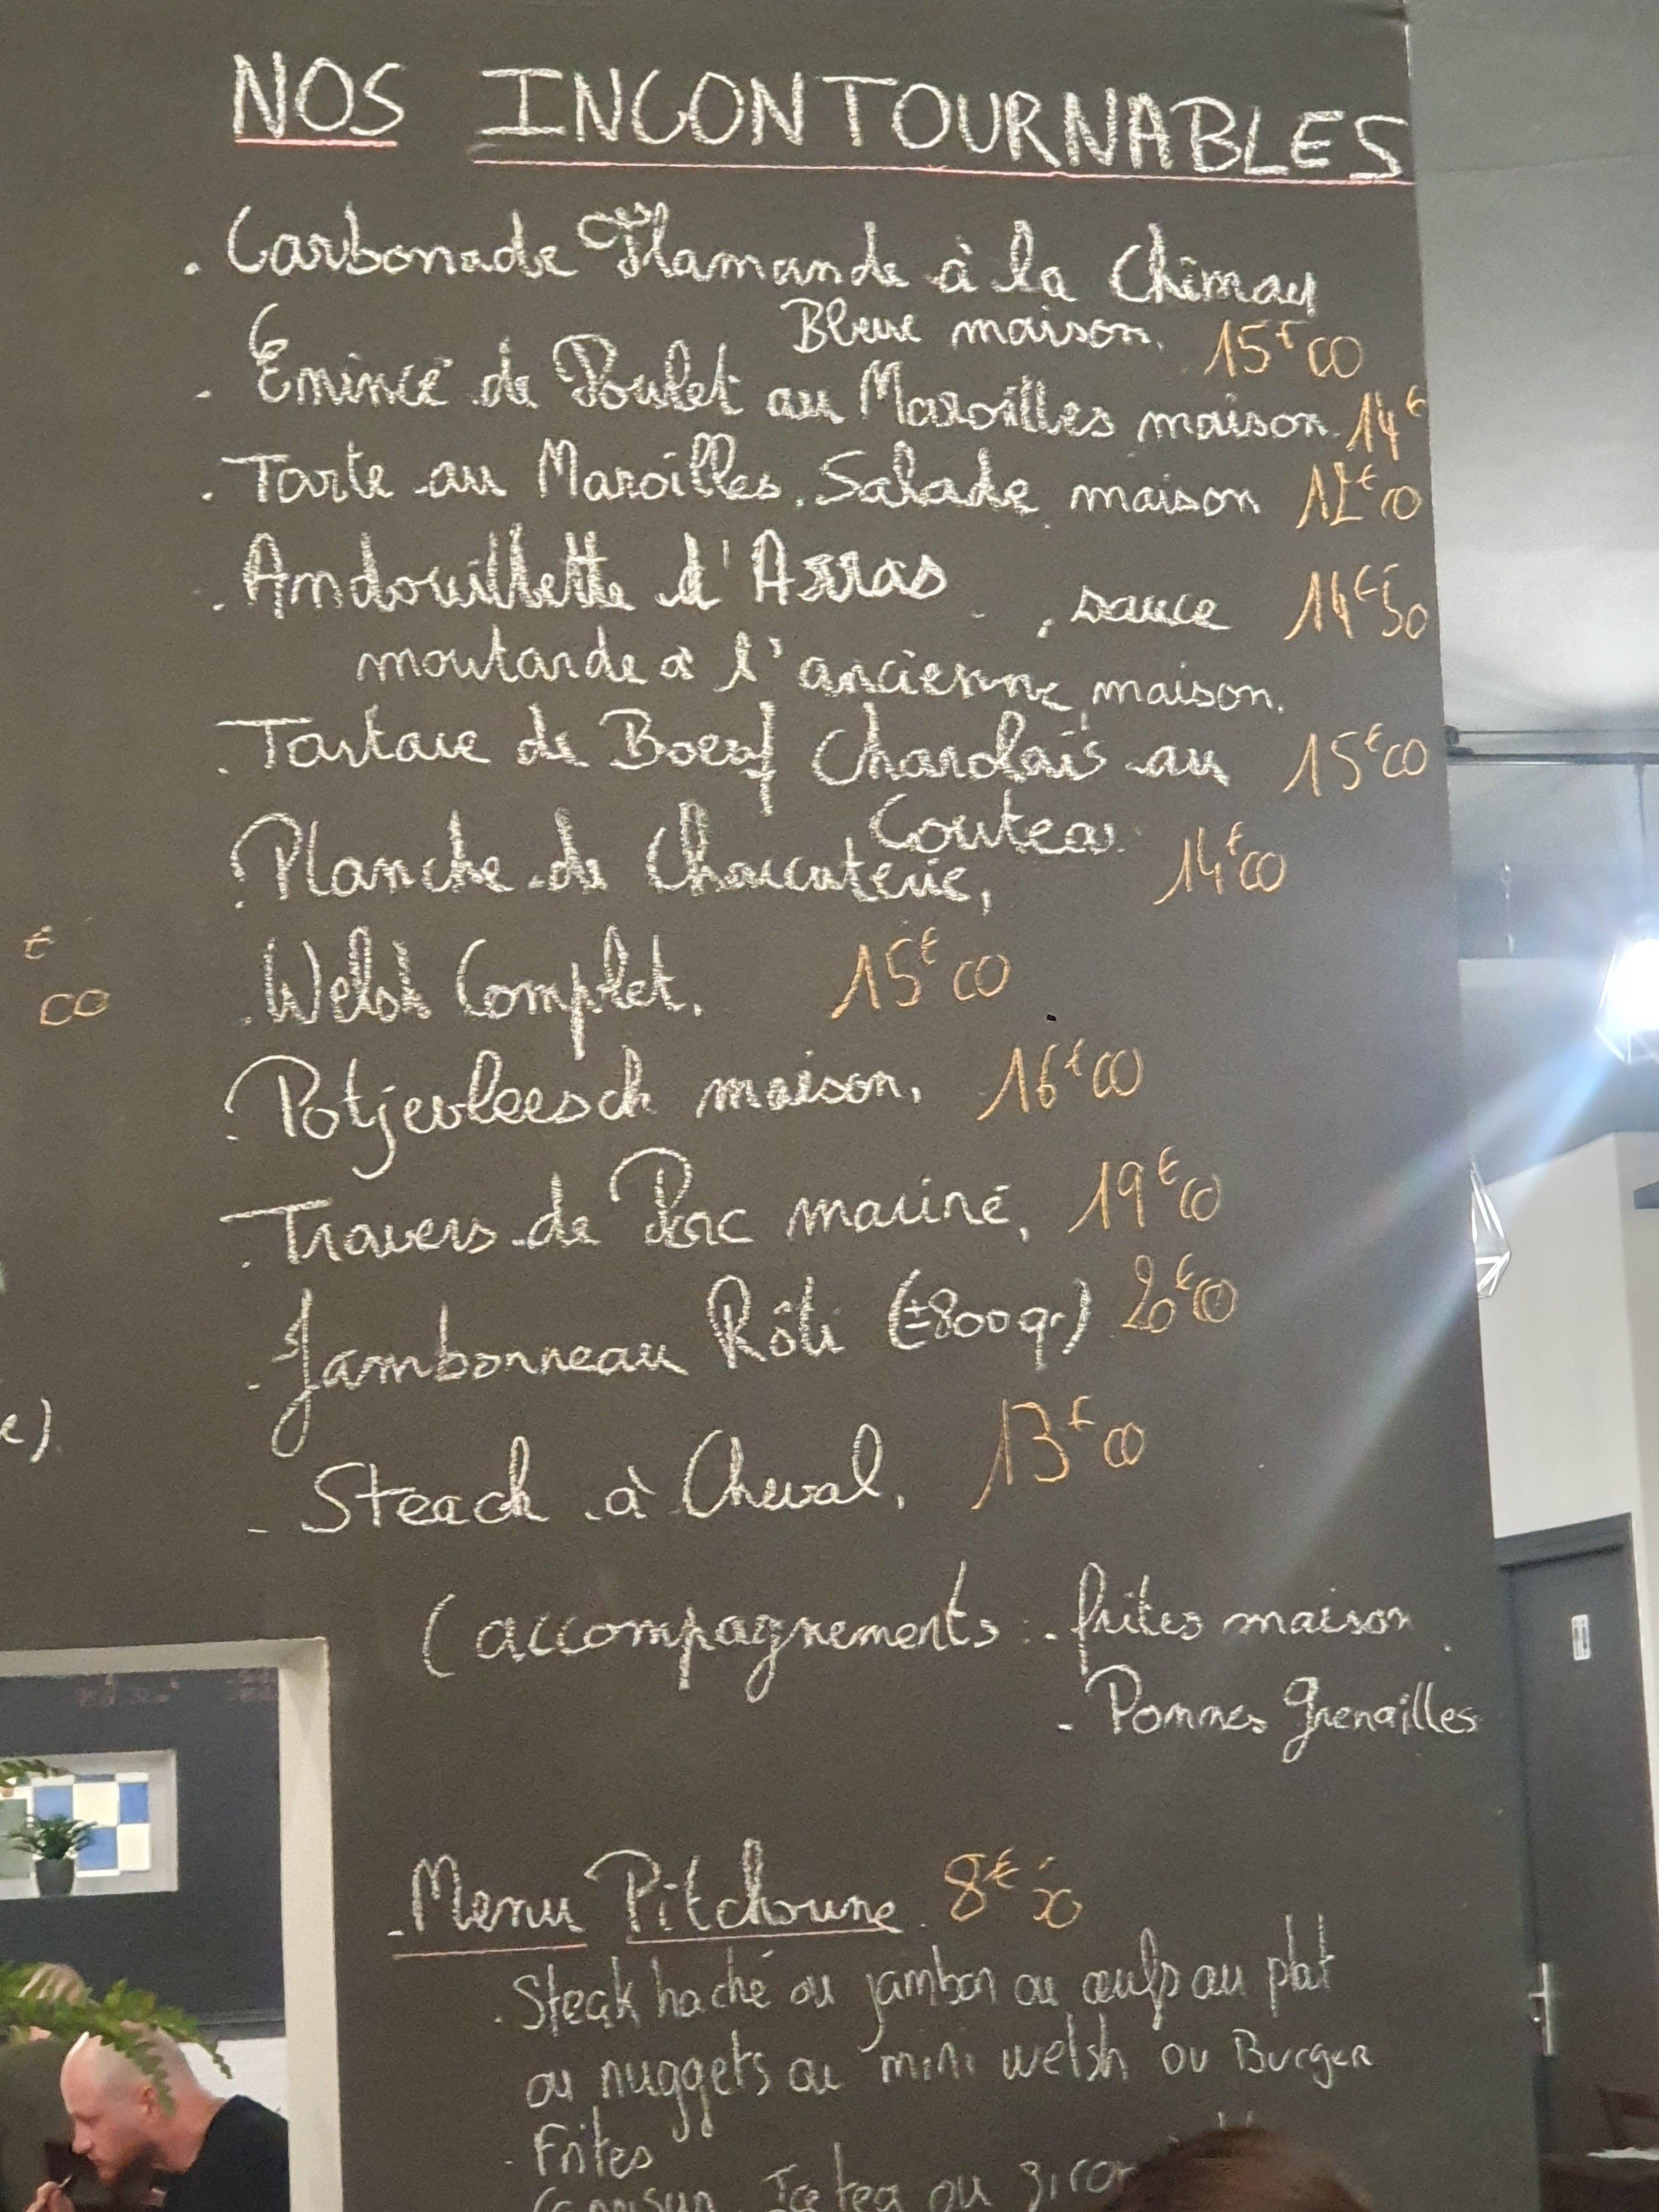 NOS INCONTOURNABLES
. Carbonade Flamande à la Chimay
Bleue maison. 15€00
- Emincé de Poulet au Maroilles maison. 14€
. Tarte au Maroilles, Salade maison 12€00
. Andouillette d'Arras , sauce 14€50
moutarde à l'ancienne maison.
. Tartare de Boeuf Charolais au 15€00
Couteau.
. Planche de Charcuterie, 14€00
. Welsh Complet. 15€00
. Potjevleesch maison. 16€00
. Travers de Porc mariné. 19€00
- Jambonneau Rôti (±800gr) 20€00
- Steack à Cheval. 13€00
€
00
e)
(accompagnements : - frites maison
- Pommes Grenailles
- Menu Pitchoune 8€50
. Steak haché ou jambon ou œufs au plat
ou nuggets ou mini welsh ou Burger
. Frites
Icetea ou